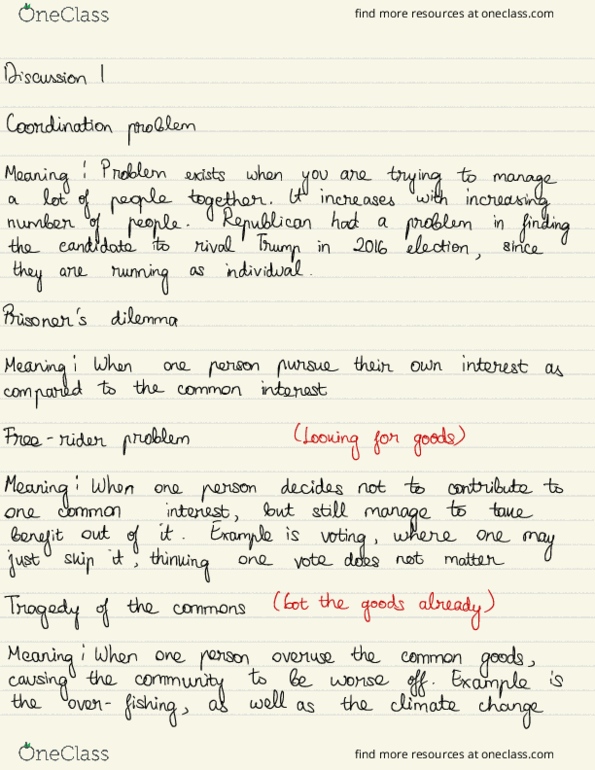 OneClass find more resources at oneclass.com
Discussion 1
Coordination problem
Meaning : Problem exists when you are trying to manage
a lot of people together. It increases with increasing
number of people. Republican had a problem in finding
the candidate to rival Trump in 2016 election, since
they are running as individual.
Prisoner's dilemma
Meaning : When one person pursue their own interest as
compared to the common interest
Free-rider problem (Looking for goods)
Meaning : When one person decides not to contribute to
one common interest, but still manage to take
benefit out of it. Example is voting, where one may
just skip it, thinking one vote does not matter
Tragedy of the commons (Got the goods already)
Meaning : When one person overuse the common goods,
causing the community to be worse off. Example is
the over-fishing, as well as the climate change
OneClass find more resources at oneclass.com